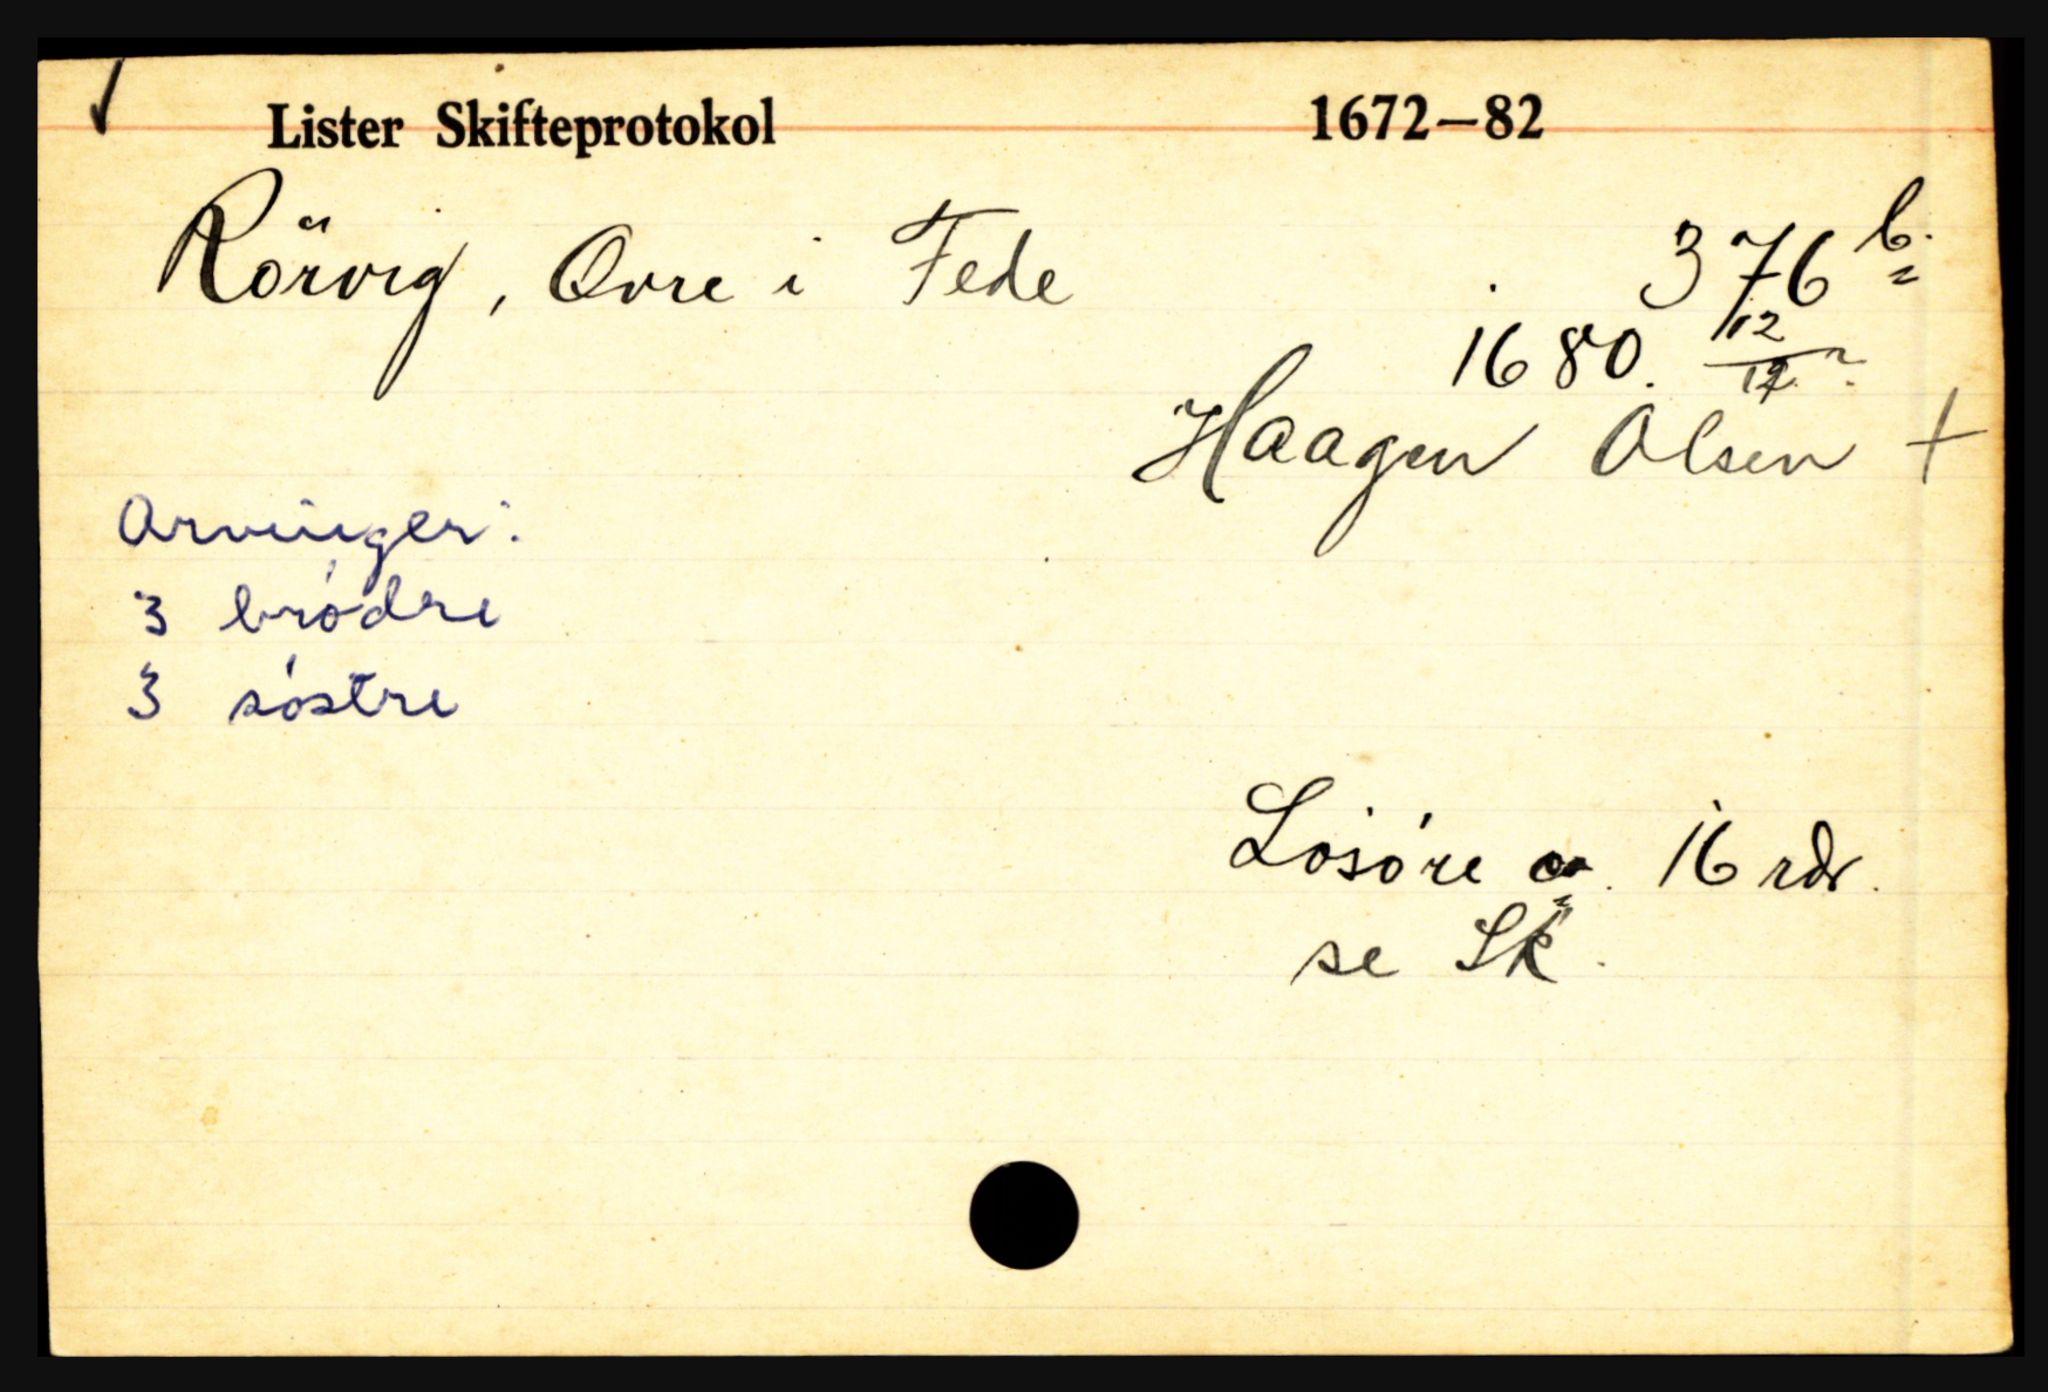 Lister Skifteprotokol 1672-82
Rörvig, Ovre i Fede 376 b.
1680. 12/12 ?
Haagen Olsen +
Arvinger:
3 brödre
3 söstre
Lösöre ca. 16 rdr.
se Sk.